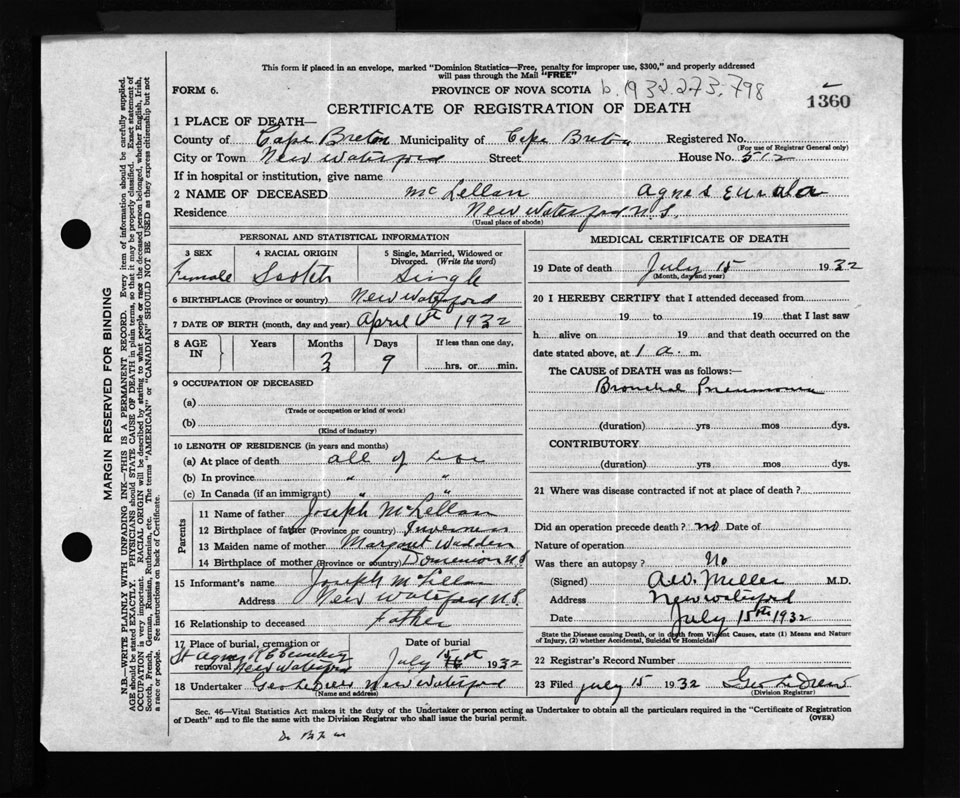 This form if placed in an envelope, marked "Dominion Statistics—Free, penalty for improper use, $300," and properly addressed
will pass through the Mail "FREE"
FORM 6.
PROVINCE OF NOVA SCOTIA b. 1932.273.798
1360
CERTIFICATE OF REGISTRATION OF DEATH
1 PLACE OF DEATH—
County of Cape Breton Municipality of Cape Breton Registered No.
(For use of Registrar General only)
City or Town New Waterford Street House No. 512
If in hospital or institution, give name
2 NAME OF DECEASED McLellan Agnes
Residence New Waterford N.S.
(Usual place of abode)
PERSONAL AND STATISTICAL INFORMATION
3 SEX 4 RACIAL ORIGIN 5 Single, Married, Widowed or Divorced. (Write the word)
Female Scotch Single
6 BIRTHPLACE (Province or country) New Waterford
7 DATE OF BIRTH (month, day and year) April 6th 1932
8 AGE IN Years Months Days If less than one day,
3 9 hrs. or min.
9 OCCUPATION OF DECEASED
(a)
(Trade or occupation or kind of work)
(b)
(Kind of industry)
10 LENGTH OF RESIDENCE (in years and months)
(a) At place of death all of
(b) In province " "
(c) In Canada (if an immigrant) " "
Parents
11 Name of father Joseph McLellan
12 Birthplace of father (Province or country) Inverness
13 Maiden name of mother Margaret Wadden
14 Birthplace of mother (Province or country) Dominion N.S
15 Informant's name Joseph McLellan
Address New Waterford N.S.
16 Relationship to deceased Father
17 Place of burial, cremation or removal Date of burial
St Agnes R C Cemetery New Waterford July 15 1932
18 Undertaker New Waterford
(Name and address)
MEDICAL CERTIFICATE OF DEATH
19 Date of death July 15 1932
(Month, day and year)
20 I HEREBY CERTIFY that I attended deceased from
19 to 19 that I last saw
h alive on 19 and that death occurred on the
date stated above, at 1 a. m.
The CAUSE of DEATH was as follows:—
Bronchial Pneumonia
(duration) yrs mos dys.
CONTRIBUTORY
(duration) yrs. mos dys.
21 Where was disease contracted if not at place of death?
Did an operation precede death? no Date of
Nature of operation
Was there an autopsy? No
(Signed) A.W. Miller M.D.
Address New Waterford
Date July 15th 1932
State the Disease causing Death, or in death from Violent Causes, state (1) Means and Nature
of Injury, (?) whether Accidental, Suicidal or Homicidal
22 Registrar's Record Number
23 Filed July 15 1932
(Division Registrar)
Sec. 46—Vital Statistics Act makes it the duty of the Undertaker or person acting as Undertaker to obtain all the particulars required in the "Certificate of Registration
of Death" and to file the same with the Division Registrar who shall issue the burial permit.
(OVER)
MARGIN RESERVED FOR BINDING
N.B.—WRITE PLAINLY WITH UNFADING INK—THIS IS A PERMANENT RECORD. Every item of information should be carefully supplied.
AGE should be stated EXACTLY. PHYSICIANS should STATE CAUSE OF DEATH in plain terms, so that it may be properly classified. Exact statement of
OCCUPATION is very important. RACIAL ORIGIN will be described by stating to what people or race the deceased person belonged, whether English, Irish,
Scotch, French, German, Russian, Ruthenian, etc. The terms "AMERICAN" or "CANADIAN" SHOULD NOT BE USED as they express citizenship but not
a race or people. See instructions on back of Certificate.